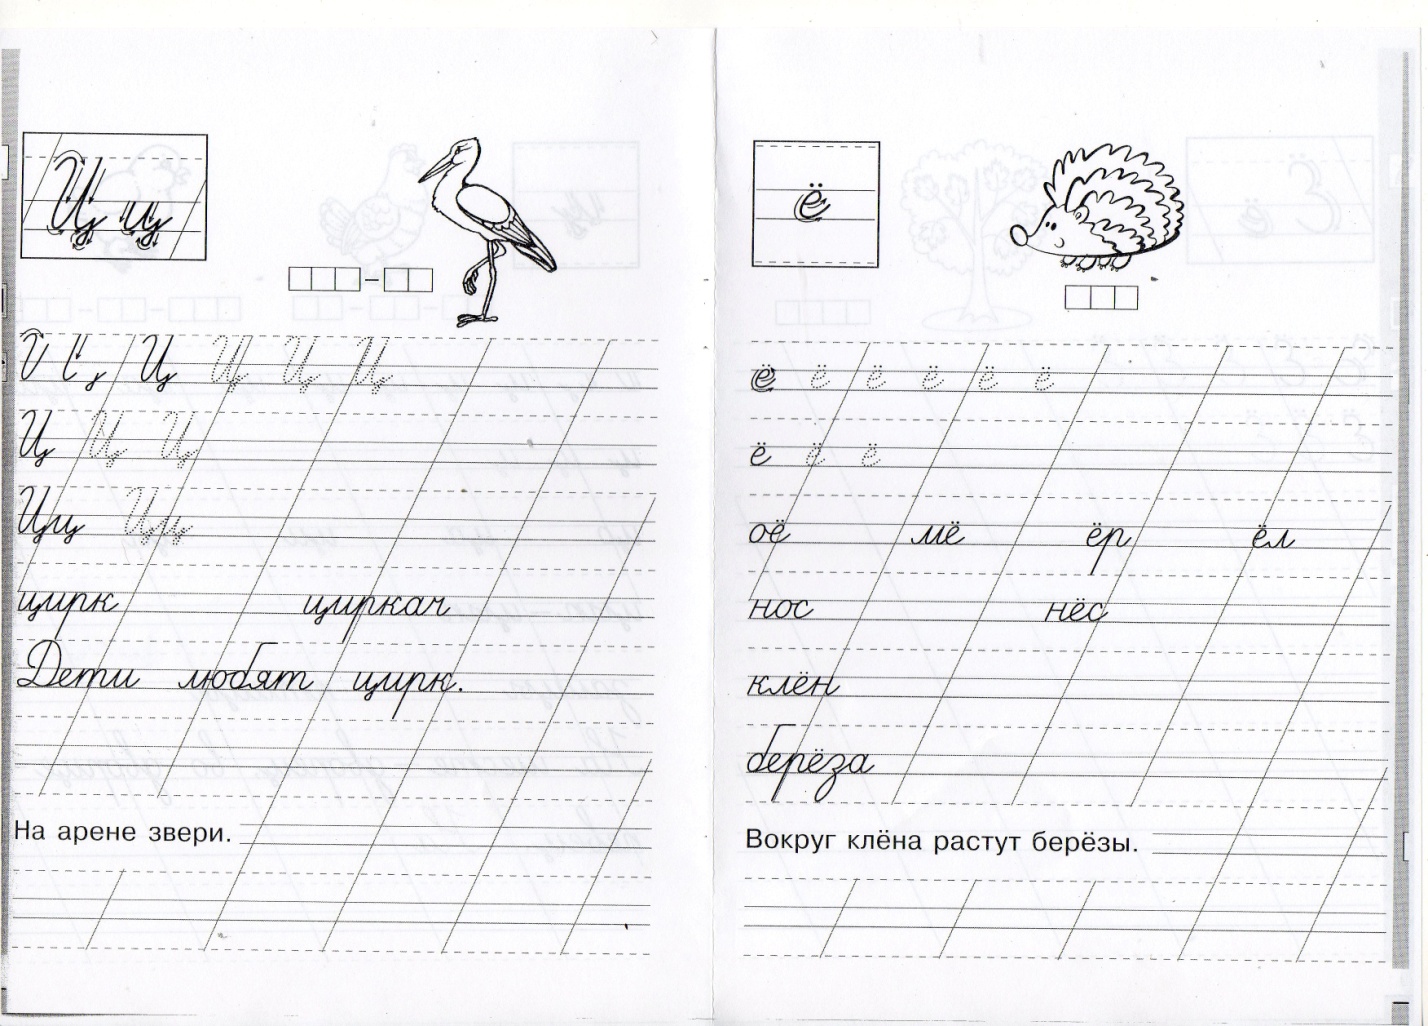 Ц ц
Ц Ц Ц Ц Ц
Ц Ц Ц
Цц Цц
цирк циркач
Дети любят цирк.
На арене звери.
ё
ё ё ё ё ё ё
ё ё ё
оё мё ёр ёл
нос нёс
клён
берёза
Вокруг клёна растут берёзы.